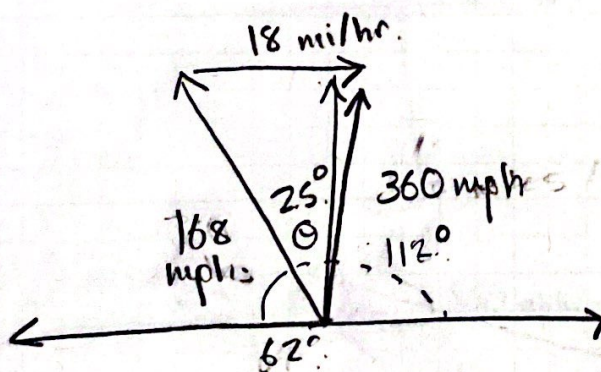 18 mi/hr.
25°
θ
360 mph
168
mph
112°
62°